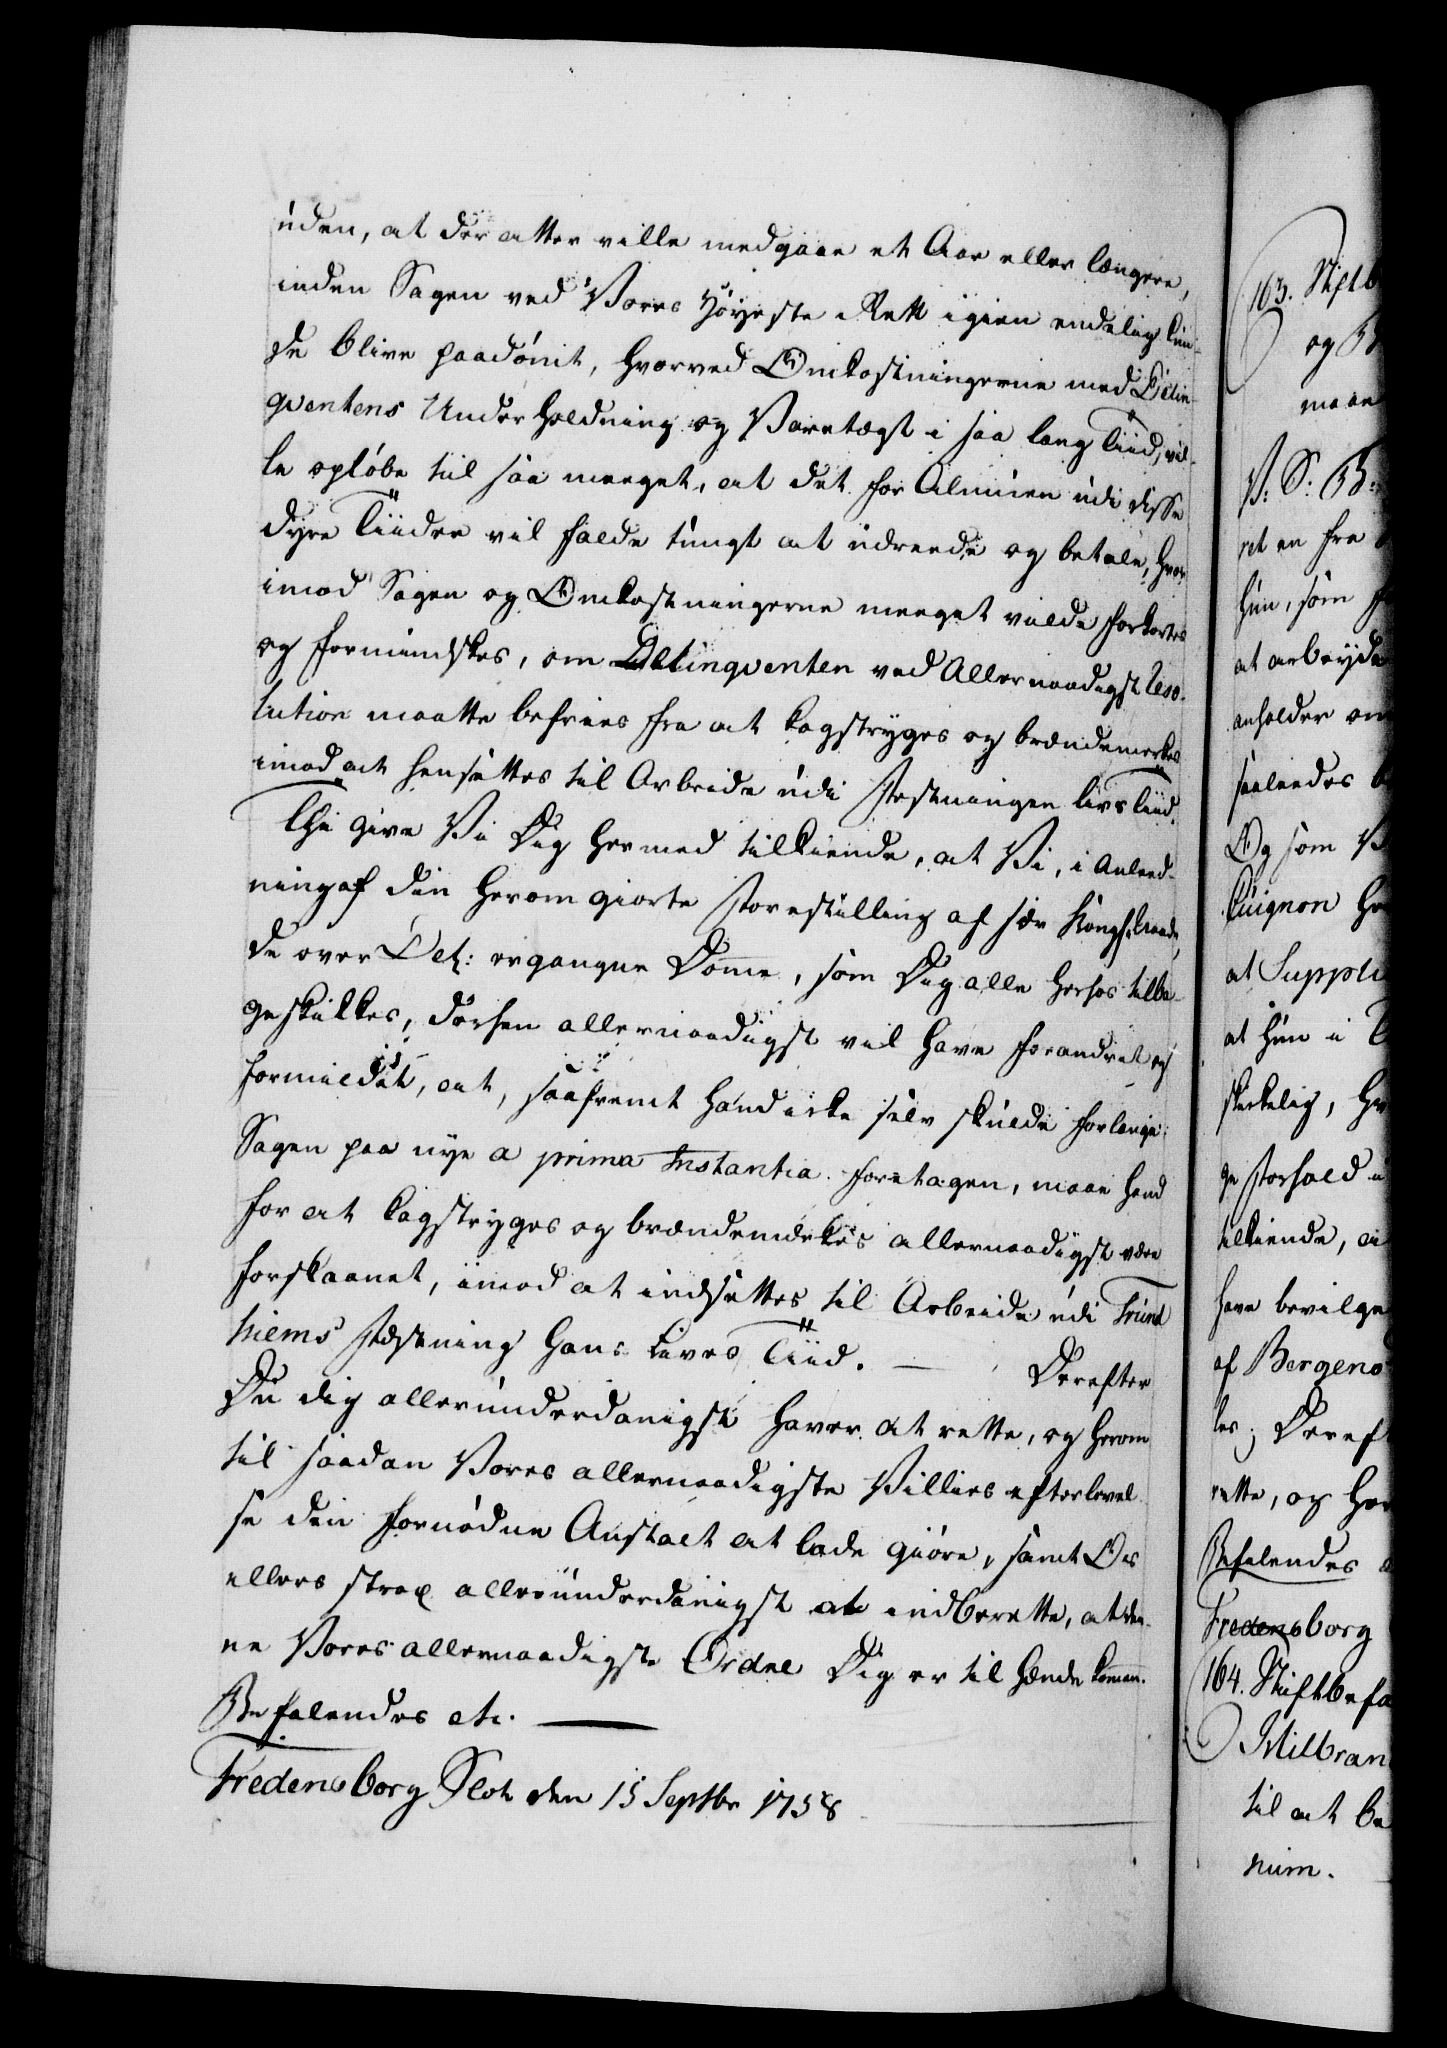 uden, at der atter ville medgaae et Aar eller længere,
inden Sagen ved Vores Høyeste Rett igien endelig kun-
de blive paadømt, hvorved Omkostningerne med Delin-
qventens Underholdning og Varetægt i saa lang Tiid, vil-
le opløbe til saa meeget, at det for Almuen udi disse
dyre Tiider vil falde tungt at udreede og betale, hvor
imod Sagen og Omkostningerne meeget vilde forkortes
og formindskes, om Delinqventen ved Allernaadigst Reso-
lution maatte befries fra at kagstryges og brændemerkes
imod at hensættes til Arbeide udi Fæstningen livstiid.
Thi give Vi Dig hermed tilkiende, at Vi, i Anleed-
ning af din herom giorte Forestilling af
de over Del: ergangne Domme, som Dig alle herhos tilba-
ge skikkes, allernaadigst vil have forandret og
formildet, at, saafremt hand icke selv skulde forlange
Sagen paa nye a prima Instantia foretagen, maae hand
for at kagstryges og brændemerkes allernaadigst være
forskaanet, imod at indsættes til Arbeide udi Trund
hiems Fæstning hans Livs Tiid. — Derefter
Du dig allerunderdanigst haver at rette, og herom
til saadan Vores allernaadigste Villies efterlevel-
se den fornødne Anstalt at lade giøre, samt Os
ellers strax allerunderdanigst at indberette, at den-
ne Vores allernaadigste Ordre Dig er til Hænde kommen.
Befalendes etc. —
Fredensborg Slot den 15 Septbr 1758
163. Stiftb
og B
maae
V: S: B:
ret en fra
hun, som
at arbeyde
anholder om
saaleedes
Og som V
Cuignon
at Suppli
at hun i
ge Forhold
tilkiende, a
have bevilge
af Bergens
les; Dereft
rette, og her
Befalendes
Fredensborg
164. Stiftbefa
Milbran
til at be
num.